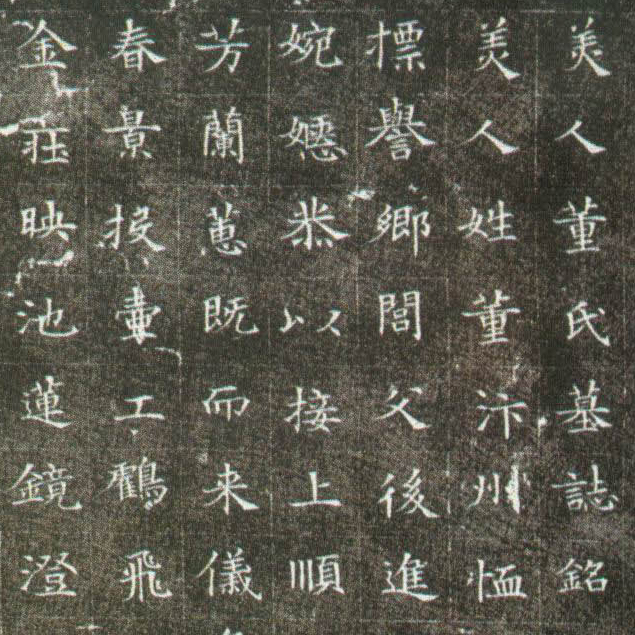 美人董氏墓誌銘
美人姓董汴州恤
摽譽鄉閭父後進
婉嬺恭以接上順
芳蘭蕙既而来儀
春景投壺工鶴飛
金莊映池蓮鏡澄